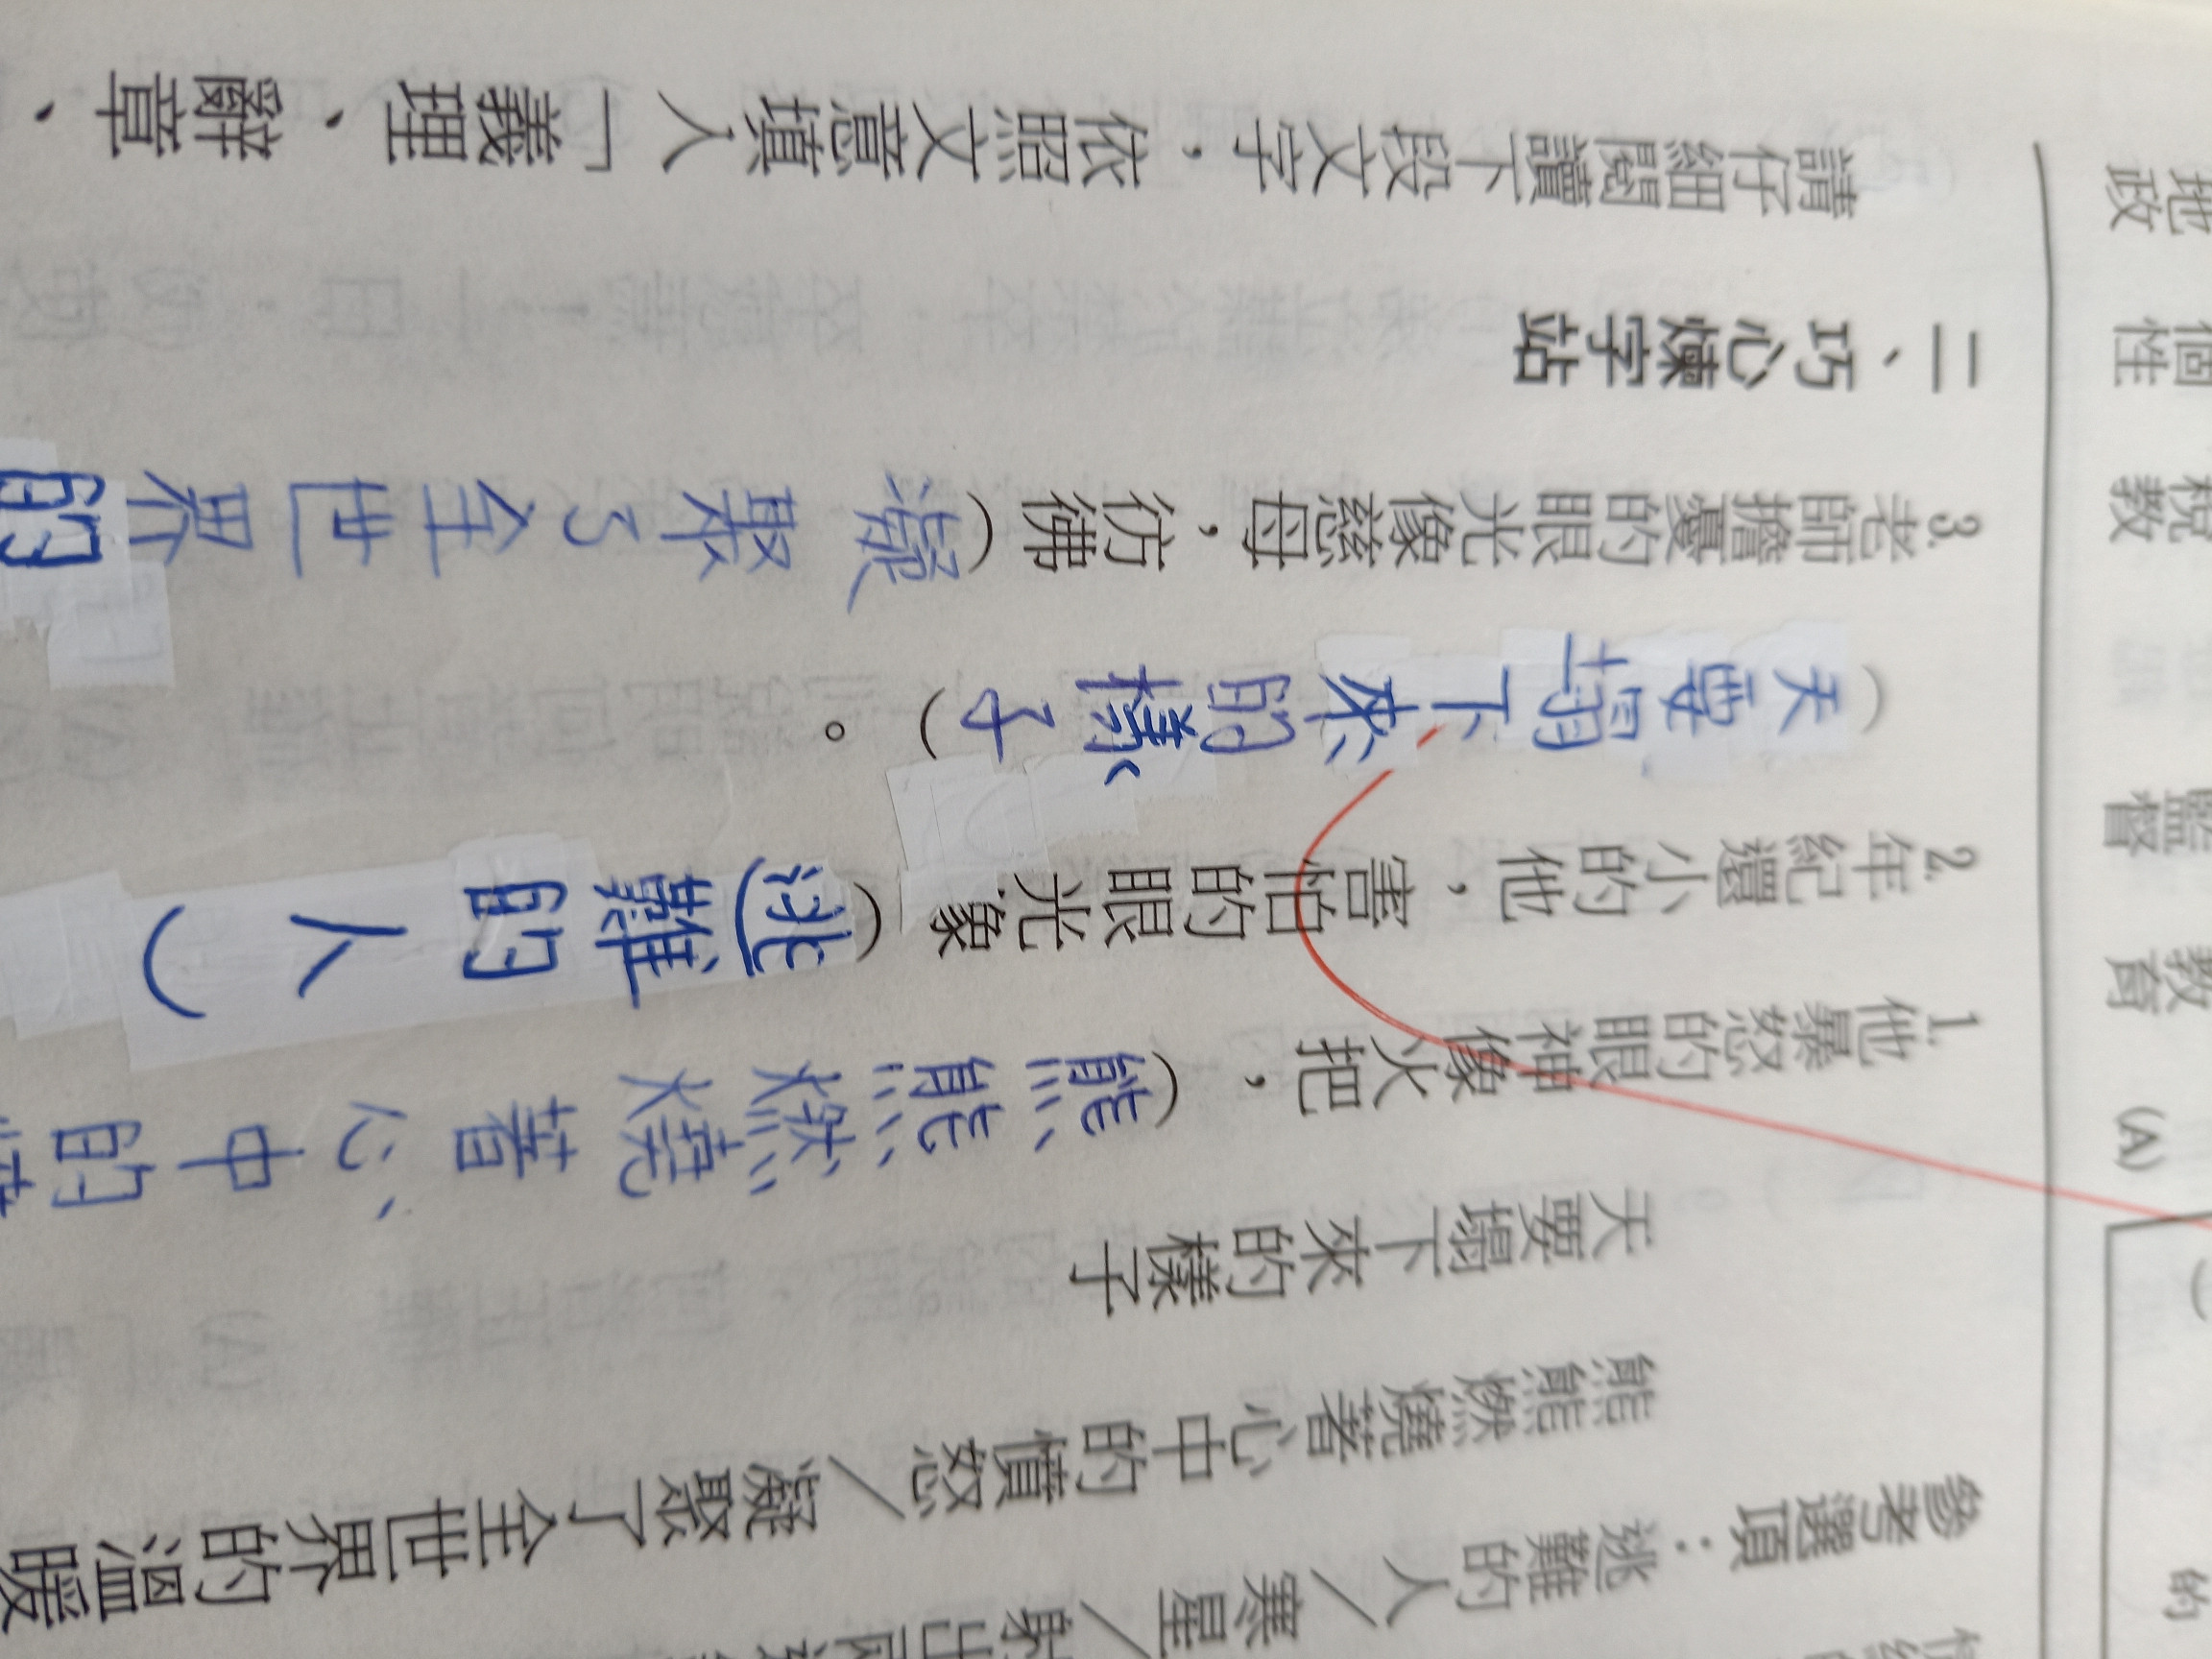 (A)
教育
監督
個性
地政
參考選項：逃難的人／寒星／射出兩道
熊熊燃燒著心中的憤怒／凝聚了全世界的溫暖
天要塌下來的樣子
1.他暴怒的眼神像火把，（熊熊燃燒著心中的
2.年紀還小的他，害怕的眼光象（逃難的人）
（天要塌下來的樣子）。
3.老師擔憂的眼光像慈母，彷彿（凝聚了全世界的
二、巧心煉字站
請仔細閱讀下段文字，依照文意填入「義理、辭章、